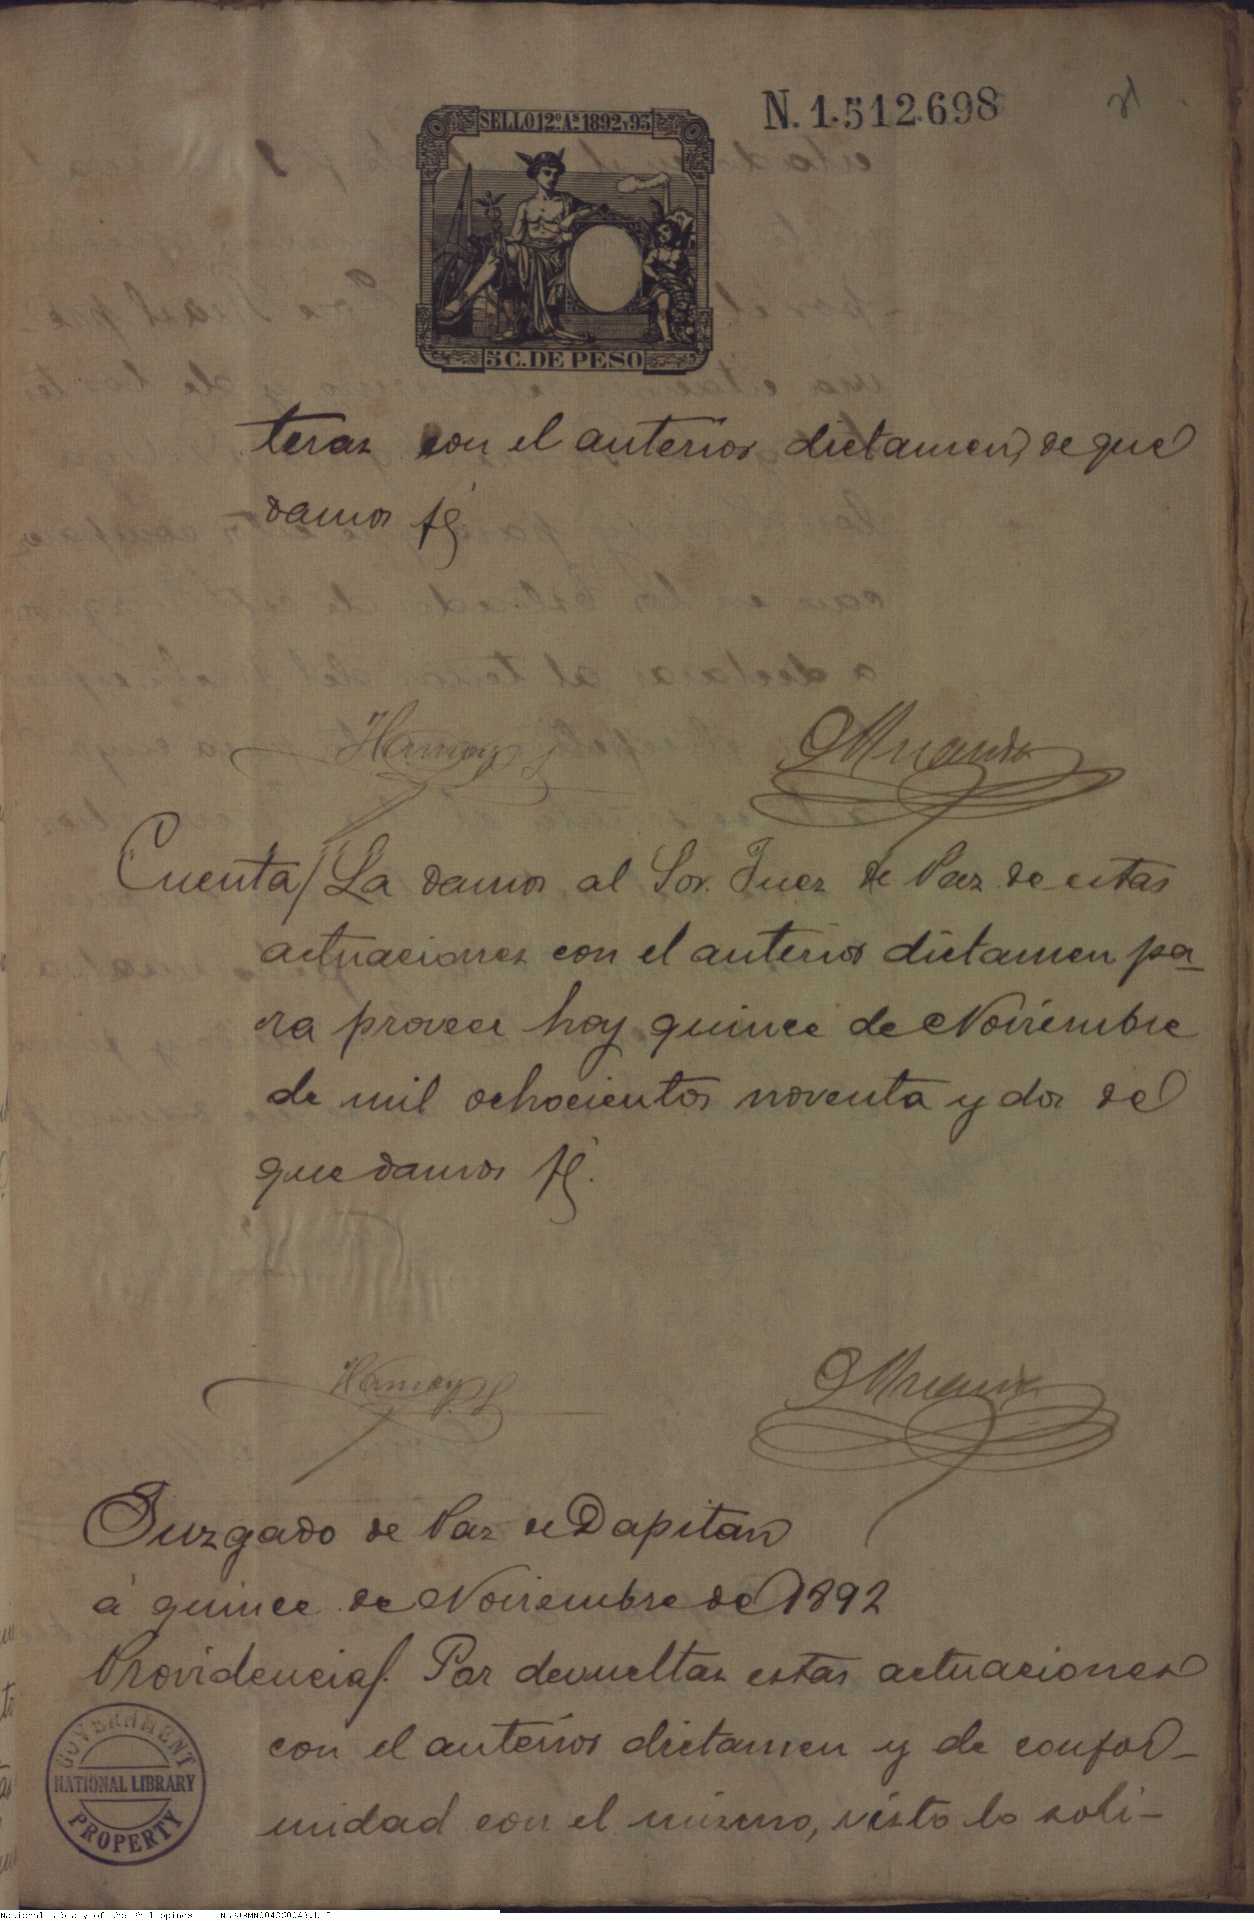 N. 1.512.698
SELLO 12º Aˢ 1892 y 93
5 C. DE PESO
teras con el anterior dictamen, de que
damos fé
Hamoy Miranda
Cuenta/ La damos al Sor. Juez de Paz de estas
actuaciones con el anterior dictamen pa_
ra proveer hoy quince de Noviembre
de mil ochocientos noventa y dos de
que damos fé.
Hamoy Miranda
Juzgado de Paz de Dapitan
á quince de Noviembre de 1892
Providencia/. Por devueltas estas actuaciones
con el anterior dictamen y de confor_
midad con el mismo, visto lo soli_
GOVERNMENT
NATIONAL LIBRARY
PROPERTY
National Library of the Philippines